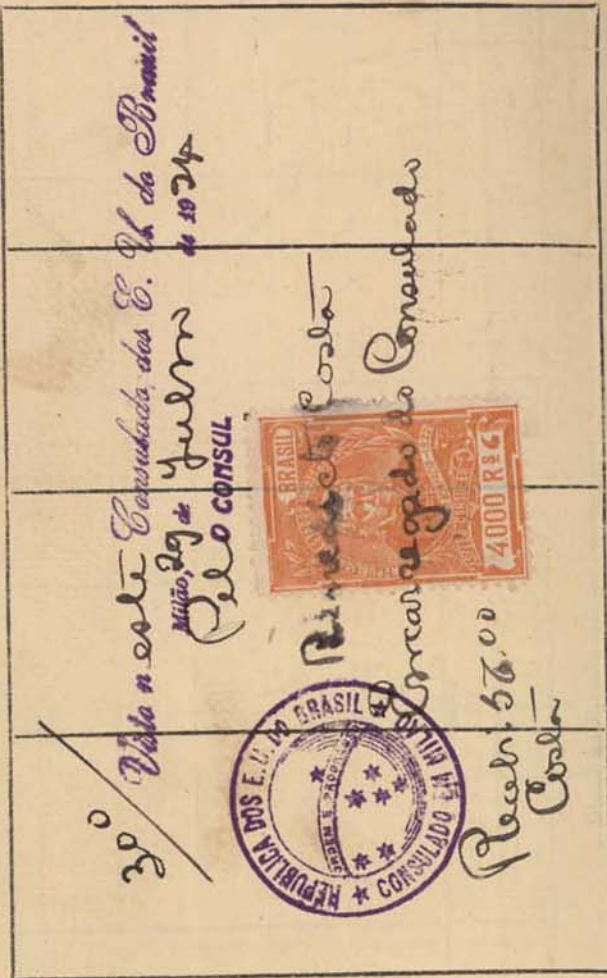 30º
Visto n este Consulado dos E. U. do Brasil
Milão, 29 de Julho de 1924
Pelo O CONSUL
Costa
Encarregado do Consulado
REPUBLICA DOS E. U. DO BRASIL
CONSULADO EM MILÃO
ORDEM E PROGRESSO
BRASIL
4000 RS
Recebi 57.00
Costa